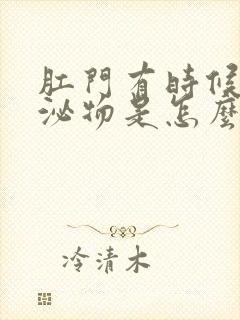 肛門有時候
泌物是怎麼
冷清木